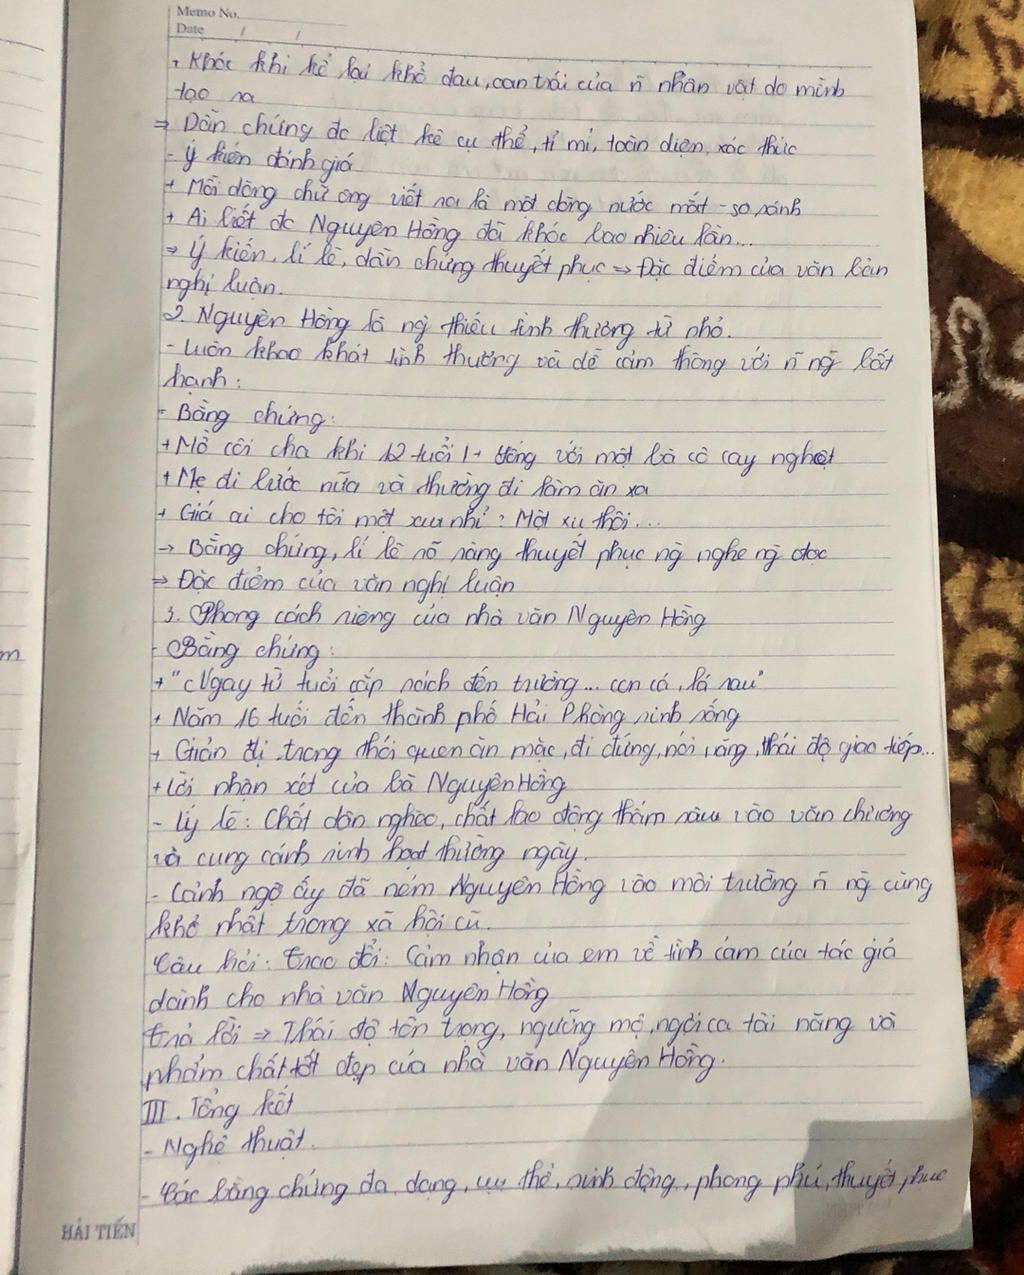 Memo No.
Date / /
+ Khóc khi kể lại khổ đau, oan trái của ñ nhân vật do mình
tạo ra
⇒ Dẫn chứng đc liệt kê cụ thể, tỉ mỉ, toàn diện, xác thực
- Ý kiến đánh giá
+ Mỗi dòng chữ ông viết ra là một dòng nước mắt - so sánh
+ Ai biết đc Nguyên Hồng đã khóc bao nhiêu lần...
⇒ Ý kiến, lí lẽ, dẫn chứng thuyết phục ⇒ Đặc điểm của văn bản
nghị luận.
2. Nguyên Hồng là ng̀ thiếu tình thương từ nhỏ.
- Luôn khao khát tình thương và dễ cảm thông với ñ ng̀ bất
hạnh:
- Bằng chứng:
+ Mồ côi cha khi 12 tuổi sống với một bà cô cay nghiệt
+ Mẹ đi bước nữa và thường đi làm ăn xa
+ Giá ai cho tôi một xu nhỉ? Một xu thôi...
→ Bằng chứng, lí lẽ rõ ràng thuyết phục ng̀ nghe ng̀ đọc
⇒ Đặc điểm của văn nghị luận
3. Phong cách riêng của nhà văn Nguyên Hồng
- Bằng chứng:
+ "Ngay từ tuổi cắp sách đến trường... con cá, lá rau"
+ Năm 16 tuổi đến thành phố Hải Phòng sinh sống
+ Giản dị trong thói quen ăn mặc, đi đứng, nói năng, thái độ giao tiếp...
+ Lời nhận xét của bà Nguyên Hồng
- Lý lẽ: Chất dân nghèo, chất lao động thấm sâu vào văn chương
và cung cánh sinh hoạt thường ngày.
- Cảnh ngộ ấy đã ném Nguyên Hồng vào môi trường ñ ng̀ cùng
khổ nhất trong xã hội cũ.
Câu hỏi: Trao đổi: Cảm nhận của em về tình cảm của tác giả
dành cho nhà văn Nguyên Hồng
Trả lời ⇒ Thái độ tôn trọng, ngưỡng mộ, ngợi ca tài năng và
phẩm chất tốt đẹp của nhà văn Nguyên Hồng.
III. Tổng kết
- Nghệ thuật.
- Các bằng chứng đa dạng, cụ thể, sinh động, phong phú, thuyết phục
HẢI TIẾN